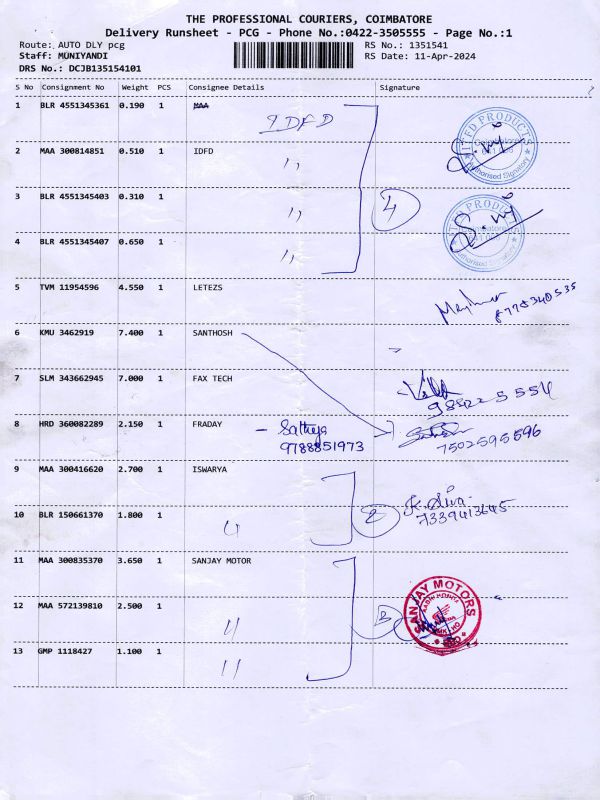 THE PROFESSIONAL COURIERS, COIMBATORE
Delivery Runsheet - PCG - Phone No.:0422-3505555 - Page No.:1
Route: AUTO DLY pcg RS No.: 1351541
Staff: MUNIYANDI RS Date: 11-Apr-2024
DRS No.: DCJB135154101
S No Consignment No Weight PCS Consignee Details Signature
1 BLR 4551345361 0.190 1 MAA
IDFD
2 MAA 300814851 0.510 1 IDFD
"
3 BLR 4551345403 0.310 1
" 4
4 BLR 4551345407 0.650 1
"
UNITED PRODUCTS
Authorised Signatory
UNITED PRODUCTS
Authorised Signatory
5 TVM 11954596 4.550 1 LETEZS
6 KMU 3462919 7.400 1 SANTHOSH
7 SLM 343662945 7.000 1 FAX TECH
8 HRD 360082289 2.150 1 FRADAY - Sathya
9788851973
7502595596
9 MAA 300416620 2.700 1 ISWARYA
10 BLR 150661370 1.800 1
" 2 K. Siva
7339413645
11 MAA 300835370 3.650 1 SANJAY MOTOR
12 MAA 572139810 2.500 1
" 3
SANJAY MOTORS
13 GMP 1118427 1.100 1
"